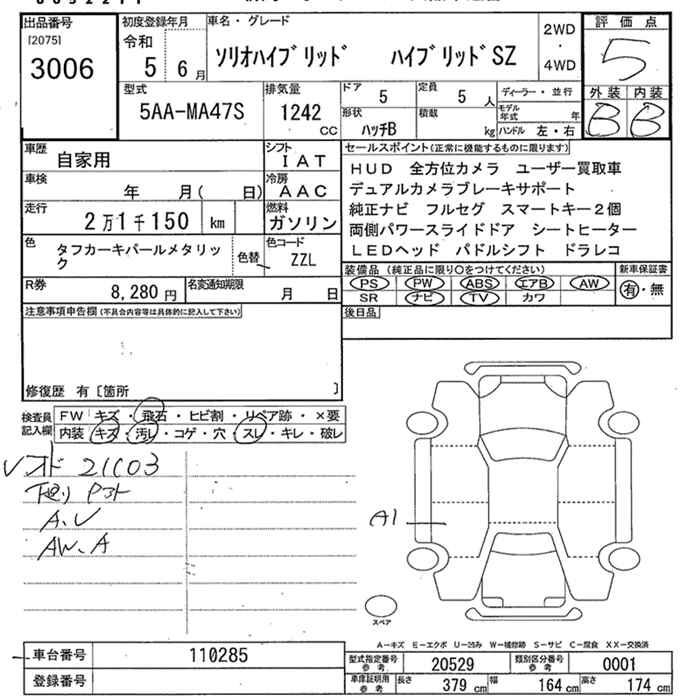 出品番号
[2075]
3006
初度登録年月
令和
5 6月
車名・グレード
ソリオハイブリッド ハイブリッドSZ
2WD
・
4WD
評価点
5
型式
5AA-MA47S
排気量
1242
CC
ドア 5
定員 5 人
形状 ハッチB
積載 kg
ディーラー・並行
モデル年式 年
ハンドル 左・右
外装 内装
B B
車歴 自家用
シフト IAT
車検 年 月( 日)
冷房 AAC
走行 2万1千150 km
燃料 ガソリン
色 タフカーキパールメタリック
色替
色コード ZZL
R券 8,280円
名変通知期限 月 日
セールスポイント(正常に機能するものに限ります)
HUD 全方位カメラ ユーザー買取車
デュアルカメラブレーキサポート
純正ナビ フルセグ スマートキー2個
両側パワースライドドア シートヒーター
LEDヘッド パドルシフト ドラレコ
装備品(純正品に限り○をつけてください)
新車保証書
PS PW ABS エアB AW
SR ナビ TV カワ
有・無
後日品
注意事項申告欄(不具合内容等は具体的に記入して下さい)
修復歴 有[箇所 ]
検査員記入欄
FW キズ・飛石・ヒビ割・リペア跡・×要
内装 キズ・汚れ・コゲ・穴・スレ・キレ・破レ
21103
A.U
AW.A
A1
スペア
A-キズ E-エクボ U-凹み W-補修跡 S-サビ C-腐食 XX-交換済
車台番号 110285
登録番号
型式指定番号参考 20529
類別区分番号参考 0001
車庫証明用参考
長さ 379cm
幅 164cm
高さ 174cm